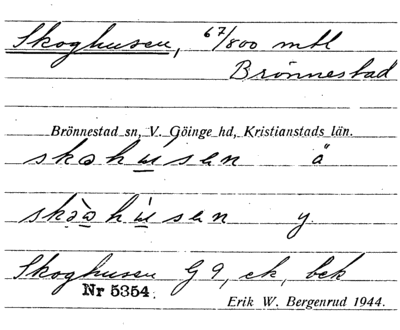 Skoghusen, 67/800 mtl
Brönnestad
Brönnestad sn, V. Göinge hd, Kristianstads län.
skohúsen ä
skòəhúsen y.
Skoghusen G9, ek, bek
Nr 5354.
Erik W. Bergenrud 1944.